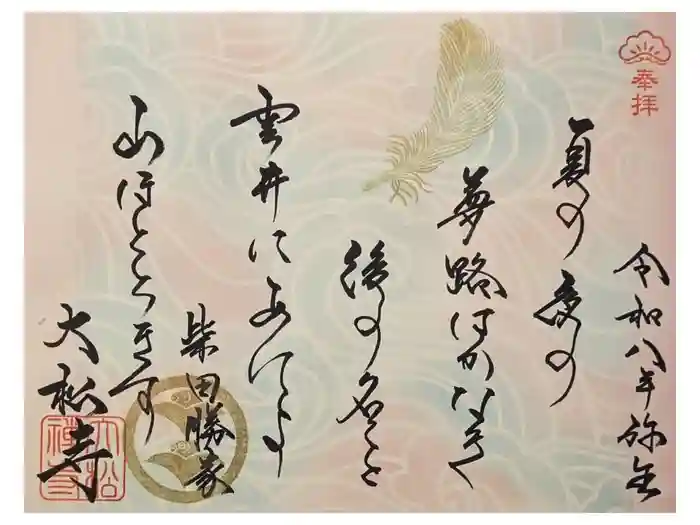 奉拝
令和八年弥生
夏の夜の
夢路はかなき
後の名を
雲井にあけよ
山ほとゝきす
柴田勝家
大松寺